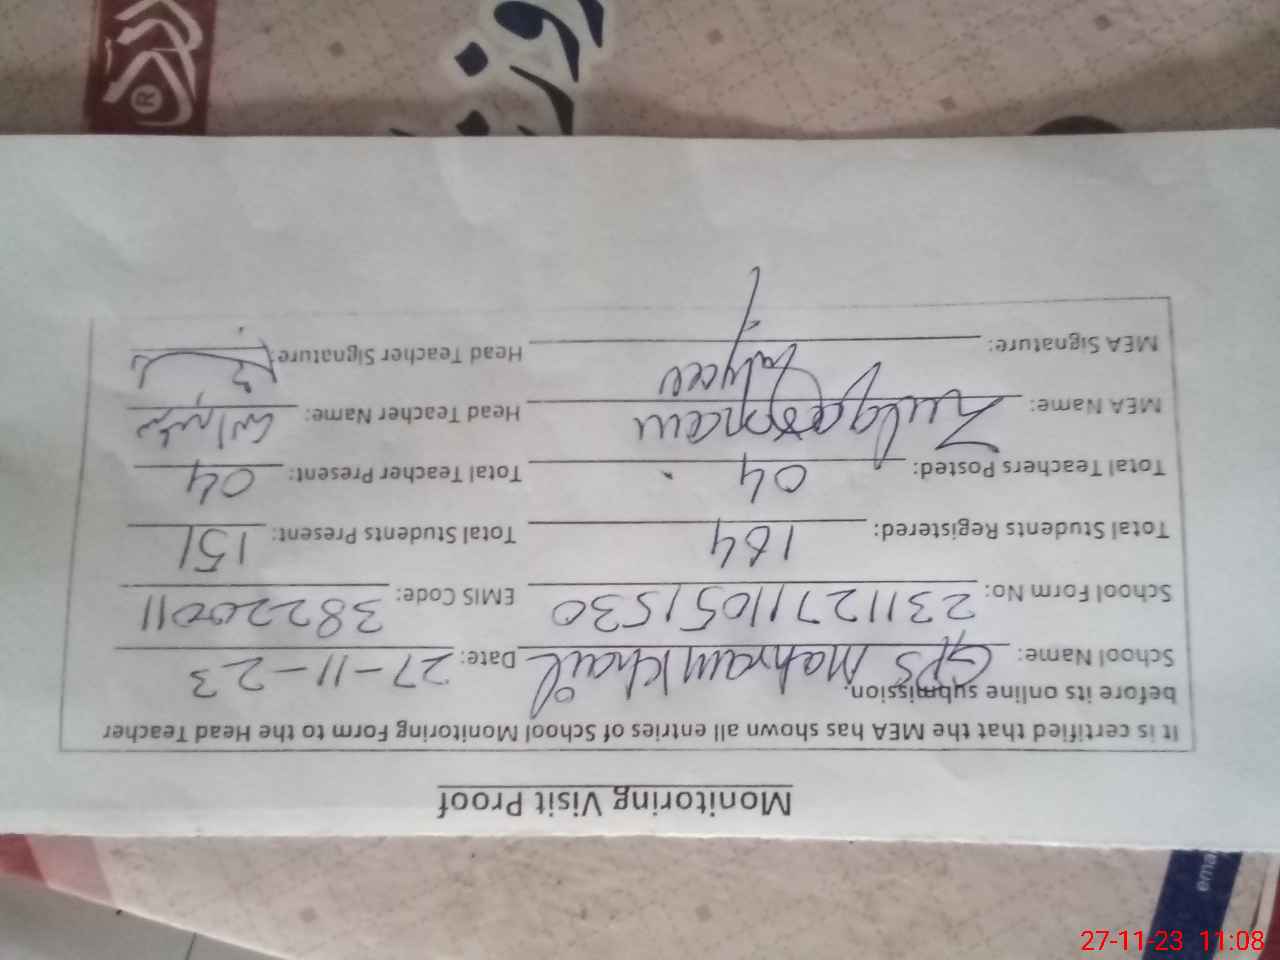 Monitoring Visit Proof
It is certified that the MEA has shown all entries of School Monitoring Form to the Head Teacher
before its online submission.
School Name: GPS Mahram Khail Date: 27-11-23
School Form No: 23112711051530 EMIS Code: 38220011
Total Students Registered: 164 Total Students Present: 151
Total Teachers Posted: 04 Total Teacher Present: 04
MEA Name: Zulqarnain Head Teacher Name:
MEA Signature: Head Teacher Signature:
ema
27-11-23 11:08